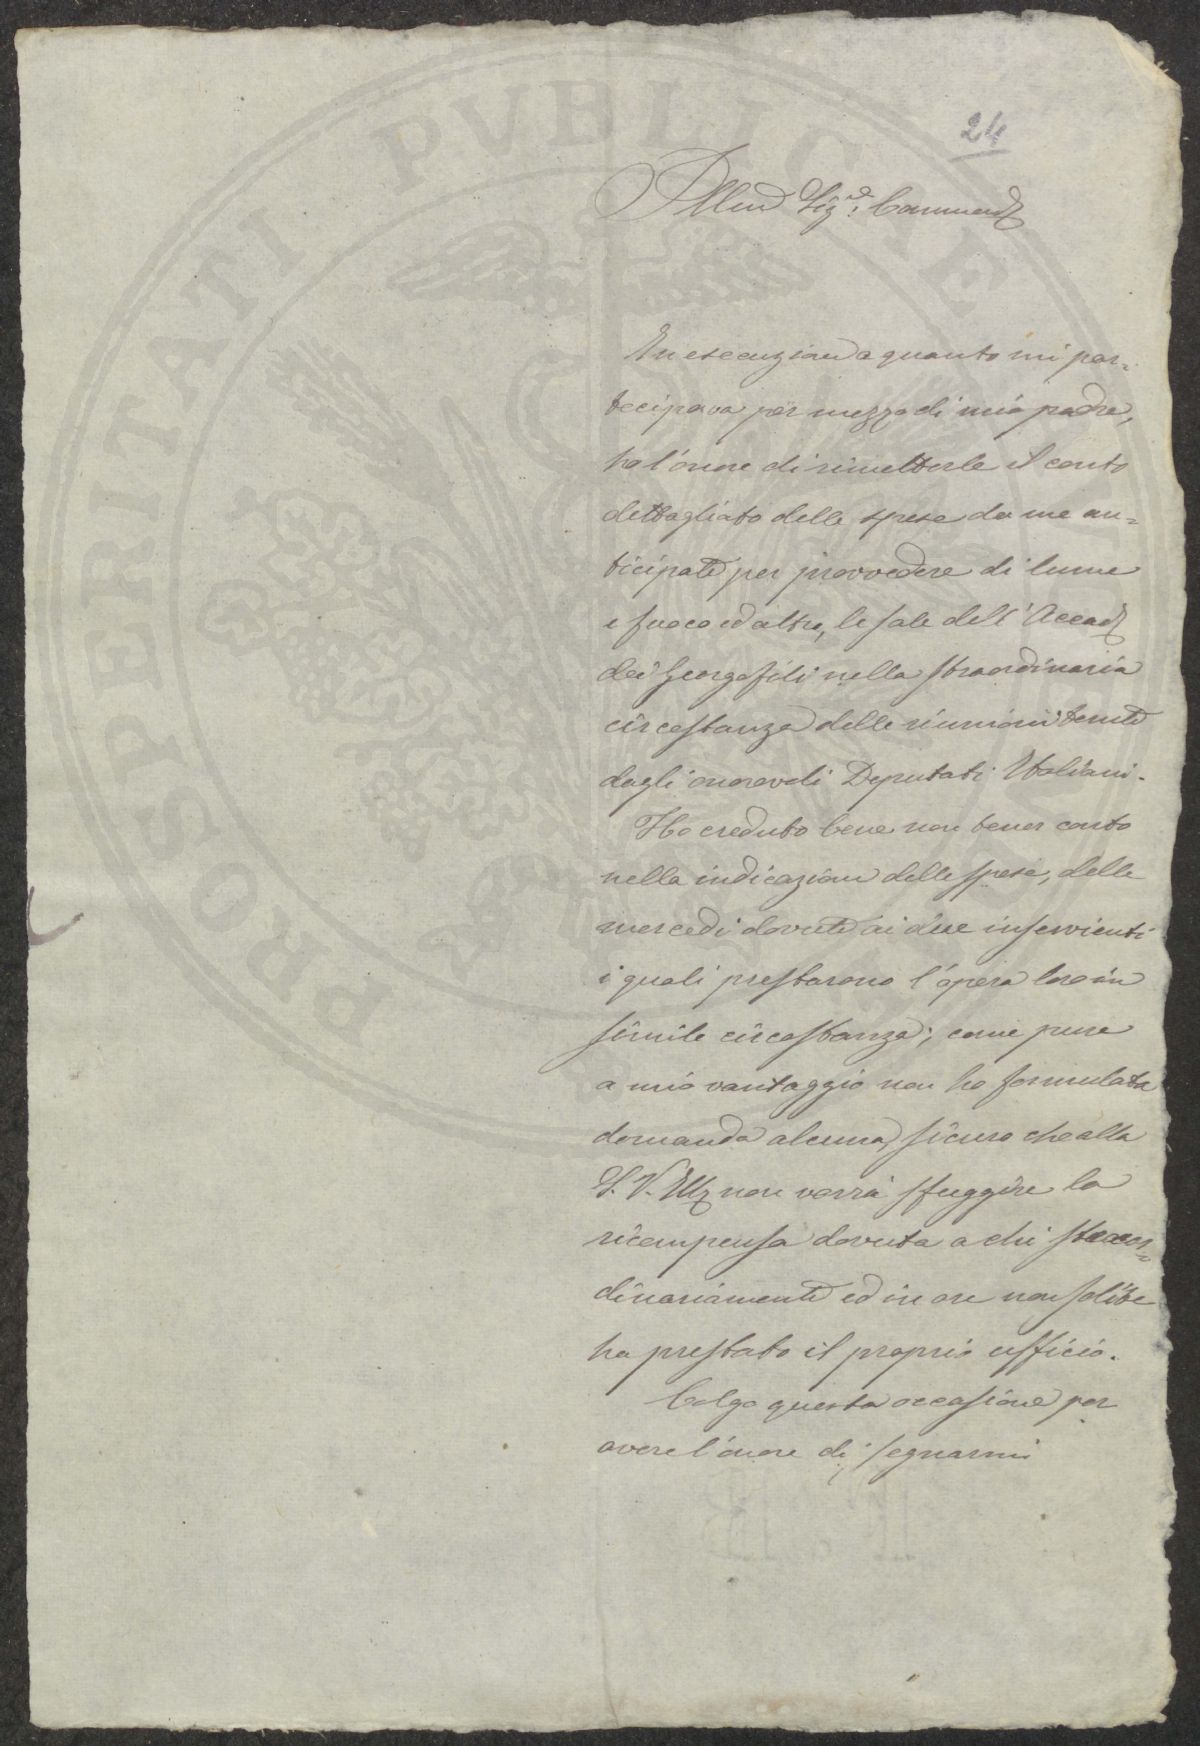 24
Illmo Sigre Commend
In esecuzione a quanto mi par=
tecipava per mezzo di mio padre,
ho l'onore di rimetterle il conto
dettagliato delle spese da me an=
ticipate per provvedere di lume
e fuoco ed altro, le sale dell'Accad
dei Georgofili nella straordinaria
circostanza delle riunioni tenute
dagli onorevoli Deputati Italiani.
Ho creduto bene non tener conto
nella indicazione delle spese, delle
mercedi dovute ai due inservienti
i quali prestarono l'opera loro in
simile circostanza; come pure
a mio vantaggio non ho formulata
domanda alcuna, sicuro che alla
S. V. Ill non vorrà sfuggire la
ricompensa dovuta a chi straor=
dinariamente ed in ore non solite
ha prestato il proprio ufficio.
Colgo questa occasione per
avere l'onore di segnarmi
PROSPERITATI PVBLICAE